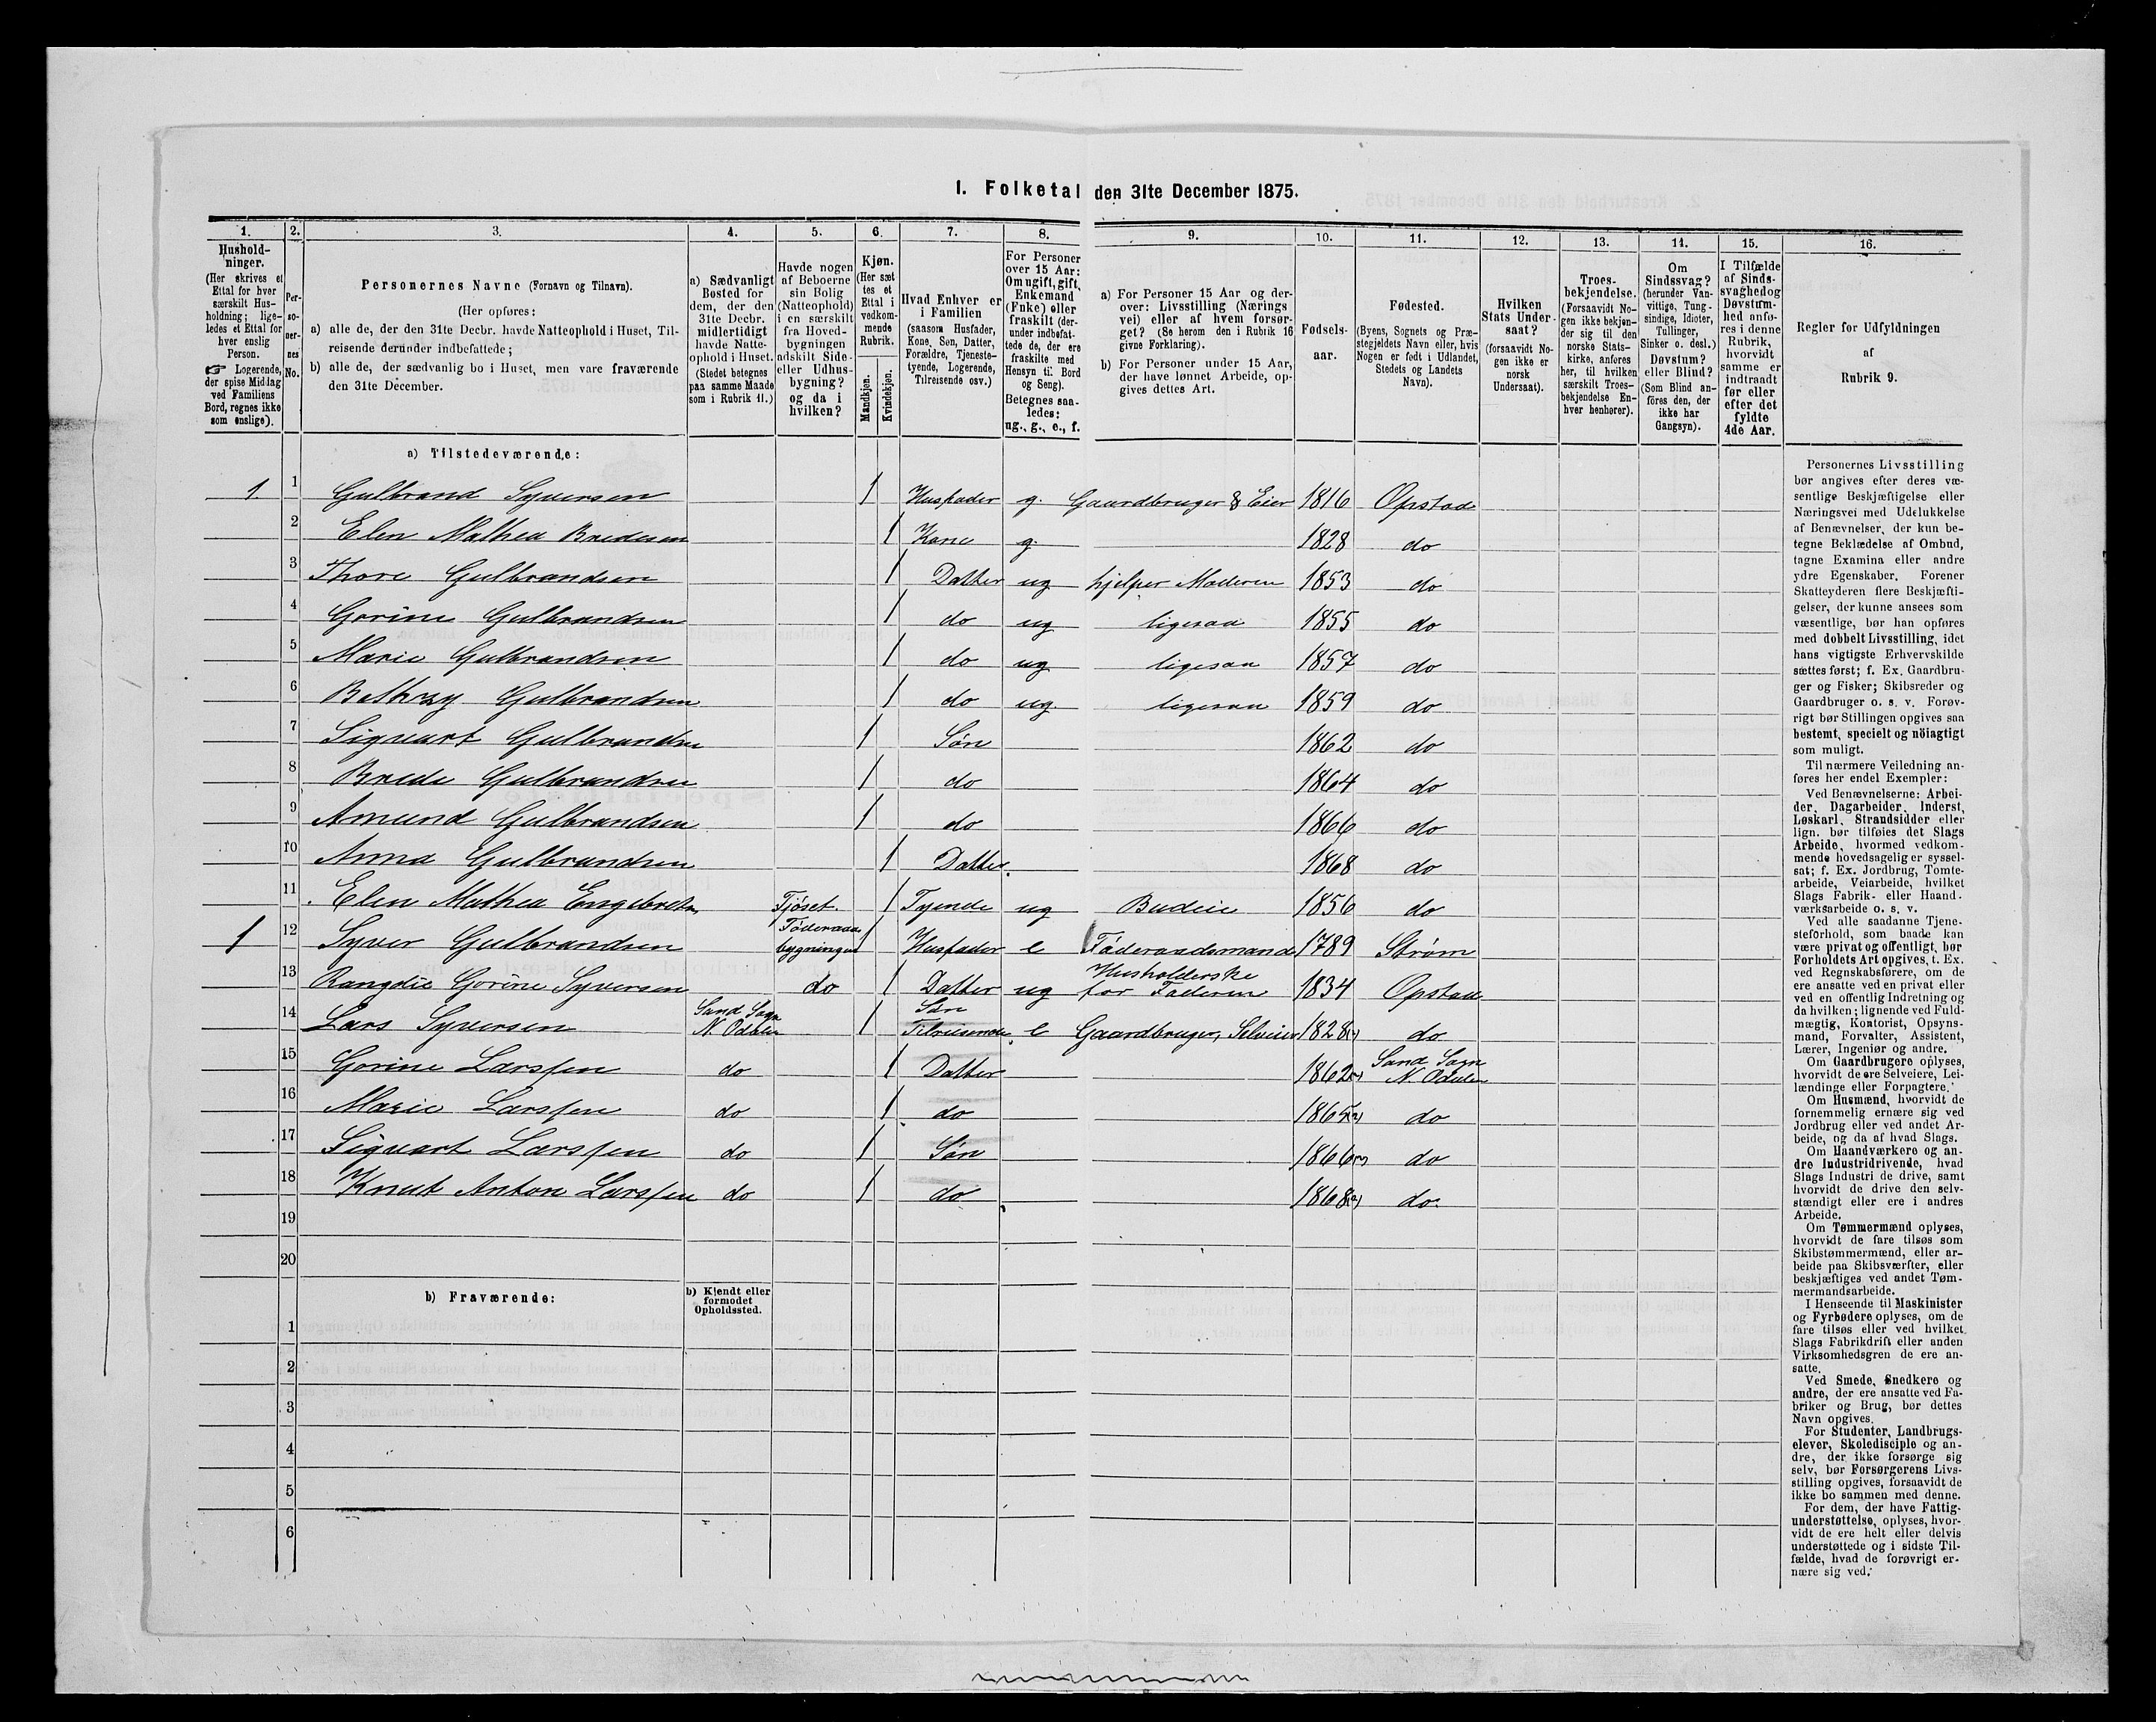 I. Folketal den 31te December 1875.
1. 2. 3. 4. 5. 6. 7. 8. 9. 10. 11. 12. 13. 14. 15. 16.
Hushold-
ninger.
(Her skrives et
Ettal for hver
særskilt Hus-
holdning; lige-
ledes et Ettal for
hver enslig
Person.
☞ Logerende,
der spise Middag
ved Familiens
Bord, regnes ikke
som enslige).
Per-
so-
ner-
nes
No.
Personernes Navne (Fornavn og Tilnavn).
(Her opføres:
a) alle de, der den 31te Decbr. havde Natteophold i Huset, Til-
reisende derunder indbefattede;
b) alle de, der sædvanlig bo i Huset, men vare fraværende
den 31te December.
a) Sædvanligt
Bosted for
dem, der den
31te Decbr.
midlertidigt
havde Natte-
ophold i Huset.
(Stedet betegnes
paa samme Maade
som i Rubrik 11.)
Havde nogen
af Beboerne
sin Bolig
(Natteophold)
i en særskilt
fra Hoved-
bygningen
adskilt Side-
eller Udhus-
bygning?
og da i
hvilken?
Kjøn.
(Her sæt
tes et
Ettal i
vedkom-
mende
Rubrik.
Mandkjøn.
Kvindekjøn.
Hvad Enhver er
i Familien
(saasom Husfader,
Kone, Søn, Datter,
Forældre, Tjeneste-
tyende, Logerende,
Tilreisende osv.)
For Personer
over 15 Aar:
Om ugift, gift,
Enkemand
(Enke) eller
fraskilt (der-
under indbefat-
tede de, der ere
fraskilte med
Hensyn til Bord
og Seng).
Betegnes saa-
ledes:
ug., g., e., f.
a) For Personer 15 Aar og der-
over: Livsstilling (Nærings
vei) eller af hvem forsør-
get? (Se herom den i Rubrik 16
givne Forklaring).
b) For Personer under 15 Aar,
der have lønnet Arbeide, op-
gives dettes Art.
Fødsels-
aar.
Fødested.
(Byens, Sognets og Præ-
stegjeldets Navn eller, hvis
Nogen er født i Udlandet,
Stedets og Landets
Navn).
Hvilken
Stats Under-
saat?
(forsaavidt No-
gen ikke er
norsk
Undersaat).
Troes-
bekjendelse.
(Forsaavidt No-
gen ikke bekjen-
der sig til den
norske Stats-
kirke, anføres
her, til hvilken
særskilt Troes-
bekjendelse En-
hver henhører).
Om
Sindssvag?
(herunder Van-
vittige, Tung-
sindige, Idioter,
Tullinger,
Sinker o. desl.)
Døvstum?
eller Blind?
(Som Blind an-
föres den, der
ikke har
Gangsyn).
I Tilfælde
af Sinds-
svaghed og
Døvstum-
hed anfø-
res i denne
Rubrik,
hvorvidt
samme er
indtraadt
før eller
efter det
fyldte
4de Aar.
Regler for Udfyldningen
af
Rubrik 9.
a) Tilstedeværende:
1 1 Gulbrand Syversen 1 Husfader g. Gaardbruger & Eier 1816 Opstad
2 Elen Mathea Bredesen 1 Kone g. 1828 do
3 Thore Gulbrandsen 1 Datter ug hjelper Moderen 1853 do
4 Gorine Gulbrandsen 1 do ug ligesaa 1855 do
5 Marie Gulbrandsen 1 do ug ligesaa 1857 do
6 Bethzy Gulbrandsen 1 do ug ligesaa 1859 do
7 Sigvart Gulbrandsen 1 Søn 1862 do
8 Brede Gulbrandsen 1 do 1864 do
9 Amund Gulbrandsen 1 do 1866 do
10 Anna Gulbrandsen 1 Datter 1868 do
11 Elen Mathea Engebretsn Fjøset. 1 Tyende ug Budeie 1856 do
1 12 Syver Gulbrandsen Føderaads bygningen 1 Husfader e Føderaadsmand 1789 Strøm
13 Rangdie Gorine Syversen do 1 Datter ug Husholderske for Faderen 1834 Opstad
14 Lars Syversen Sand Sogn N. Odalen 1 Søn Tilreisende e Gaardbruger, Selveier 1828 do
15 Gorine Larssen do 1 Datter 1862 Sand Sogn N. Odalen
16 Marie Larssen do 1 do 1865 do
17 Sigvart Larssen do 1 Søn 1866 do
18 Knut Anton Larssen do 1 do 1868 do.
19
20
b) Fraværende:
b) Kjendt eller
formodet
Opholdssted.
1
2
3
4
5
6
Personernes Livsstilling
bør angives efter deres væ-
sentlige Beskjæftigelse eller
Næringsvei med Udelukkelse
af Benævnelser, der kun be-
tegne Beklædelse af Ombud,
tagne Examina eller andre
ydre Egenskaber. Forener
Skatteyderen flere Beskjæfti-
gelser, der kunne ansees som
væsentlige, bør han opføres
med dobbelt Livsstilling, idet
hans vigtigste Erhvervskilde
sættes først; f. Ex. Gaardbru-
ger og Fisker; Skibsreder og
Gaardbruger o. s. v. Forøv-
rigt bør Stillingen opgives saa
bestemt, specielt og nöiagtigt
som muligt.
Til nærmere Veiledning an-
føres her endel Exempler:
Ved Benævnelserne: Arbei-
der, Dagarbeider, Inderst,
Løskarl, Strandsidder eller
lign. bør tilføies det Slags
Arbeide, hvormed vedkom-
mende hovedsagelig er syssel-
sat; f. Ex. Jordbrug, Tomte-
arbeide, Veiarbeide, hvilket
Slags Fabrik- eller Haand-
værksarbeide o. s. v.
Ved alle saadanne Tjene-
steforhold, som baade kan
være privat og offentligt, bør
Forholdets Art opgives, t. Ex.
ved Regnskabsførere, om de
ere ansatte ved en privat eller
ved en offentlig Indretning og
da hvilken; lignende ved Fuld-
mægtig, Kontorist, Opsyns-
mand, Forvalter, Assistent,
Lærer, Ingeniør og andre.
Om Gaardbrugere oplyses,
hvorvidt de ere Selveiere, Lei-
lændinge eller Forpagtere.
Om Husmænd, hvorvidt de
fornemmelig ernære sig ved
Jordbrug eller ved andet Ar-
beide, og da af hvad Slags.
Om Haandværkere og an-
dre Industridrivende, hvad
Slags Industri de drive, samt
hvorvidt de drive den selv-
stændigt eller ere i andres
Arbeide.
Om Tømmermænd oplyses,
hvorvidt de fare tilsøs som
Skibstømmermænd, eller ar-
beide paa Skibsværfter, eller
beskjæftiges ved andet Tøm-
mermandsarbeide.
I Henseende til Maskinister
og Fyrbødere oplyses, om de
fare tilsøs eller ved hvilket
Slags Fabrikdrift eller anden
Virksomhedsgren de ere an-
satte.
Ved Smede, Snedkere og
andre, der ere ansatte ved Fa-
briker og Brug, bør dettes
Navn opgives.
For Studenter, Landbrugs-
elever, Skoledisciple og an-
dre, der ikke forsørge sig
selv, bør Forsørgerens Livs-
stilling opgives, forsaavidt de
ikke bo sammen med denne.
For dem, der have Fattig-
understøttelse, oplyses, hvor-
vidt de ere helt eller delvis
understøttede og i sidste Til-
fælde, hvad de forøvrigt er-
nære sig ved.